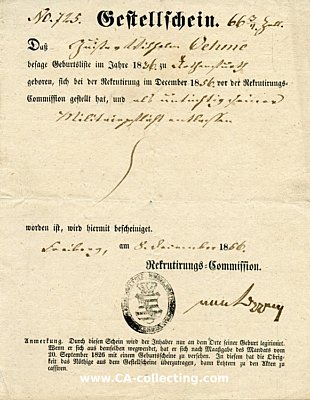 No. 725. Gestellschein. 66 3/4 Zoll.
Daß Wilhelm Oehme
besage Geburtsliste im Jahre 1836. zu
geboren, sich bei der Rekrutirung im December 1856 vor der Rekrutirungs-
Commission gestellt hat, und als untüchtig seiner
Militairpflicht entlassen
worden ist, wird hiermit bescheiniget.
Freiberg, am 8. December 1856.
Rekrutirungs-Commission.
Anmerkung. Durch diesen Schein wird der Inhaber nur an dem Orte seiner Geburt legitimirt.
Wenn er sich aus demselben wegwendet, hat er sich nach Maaßgabe des Mandats vom
20. September 1826 mit einem Geburtsscheine zu versehen. In diesem hat die Obrig-
keit das Nöthige aus dem Gestellscheine überzutragen, dann Letztern zu den Akten zu
cassiren.
www.CA-collecting.com